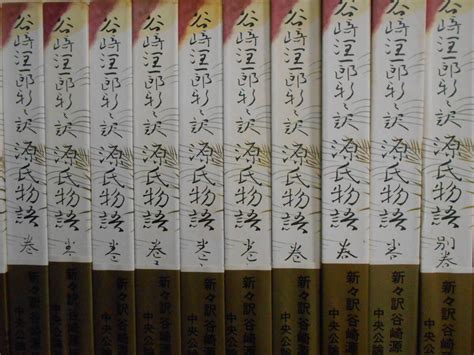 谷崎潤一郎新々訳 源氏物語 巻
新々訳谷崎源
中央公論
谷崎潤一郎新々訳 源氏物語 巻
新々訳谷崎源
中央公論
谷崎潤一郎新々訳 源氏物語 巻
新々訳谷崎源
中央公論
谷崎潤一郎新々訳 源氏物語 巻
新々訳谷崎源
中央公論
谷崎潤一郎新々訳 源氏物語 巻
新々訳谷崎源
中央公論
谷崎潤一郎新々訳 源氏物語 巻
新々訳谷崎源
中央公論
谷崎潤一郎新々訳 源氏物語 巻
新々訳谷崎源
中央公論
谷崎潤一郎新々訳 源氏物語 巻
新々訳谷崎源
中央公論
谷崎潤一郎新々訳 源氏物語 巻
新々訳谷崎源
中央公論
谷崎潤一郎新々訳 源氏物語 別巻
新々訳谷崎源
中央公論